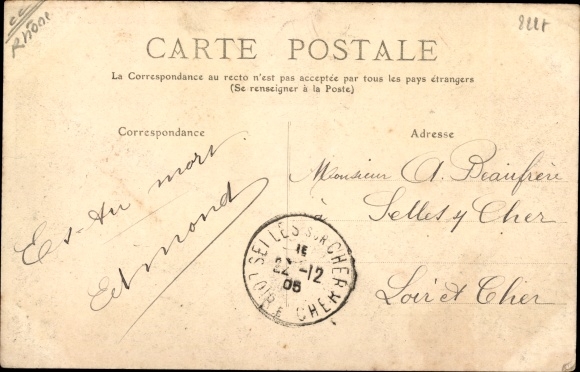 cc
Rhône
CARTE POSTALE
La Correspondance au recto n'est pas acceptée par tous les pays étrangers
(Se renseigner à la Poste)
Correspondance
Es-tu mort
Edmond
Adresse
Monsieur A. Beaufrère
à
Selles s/ Cher
Loir et Cher
SELLES SUR CHER
22 -12
05
LOIR & CHER